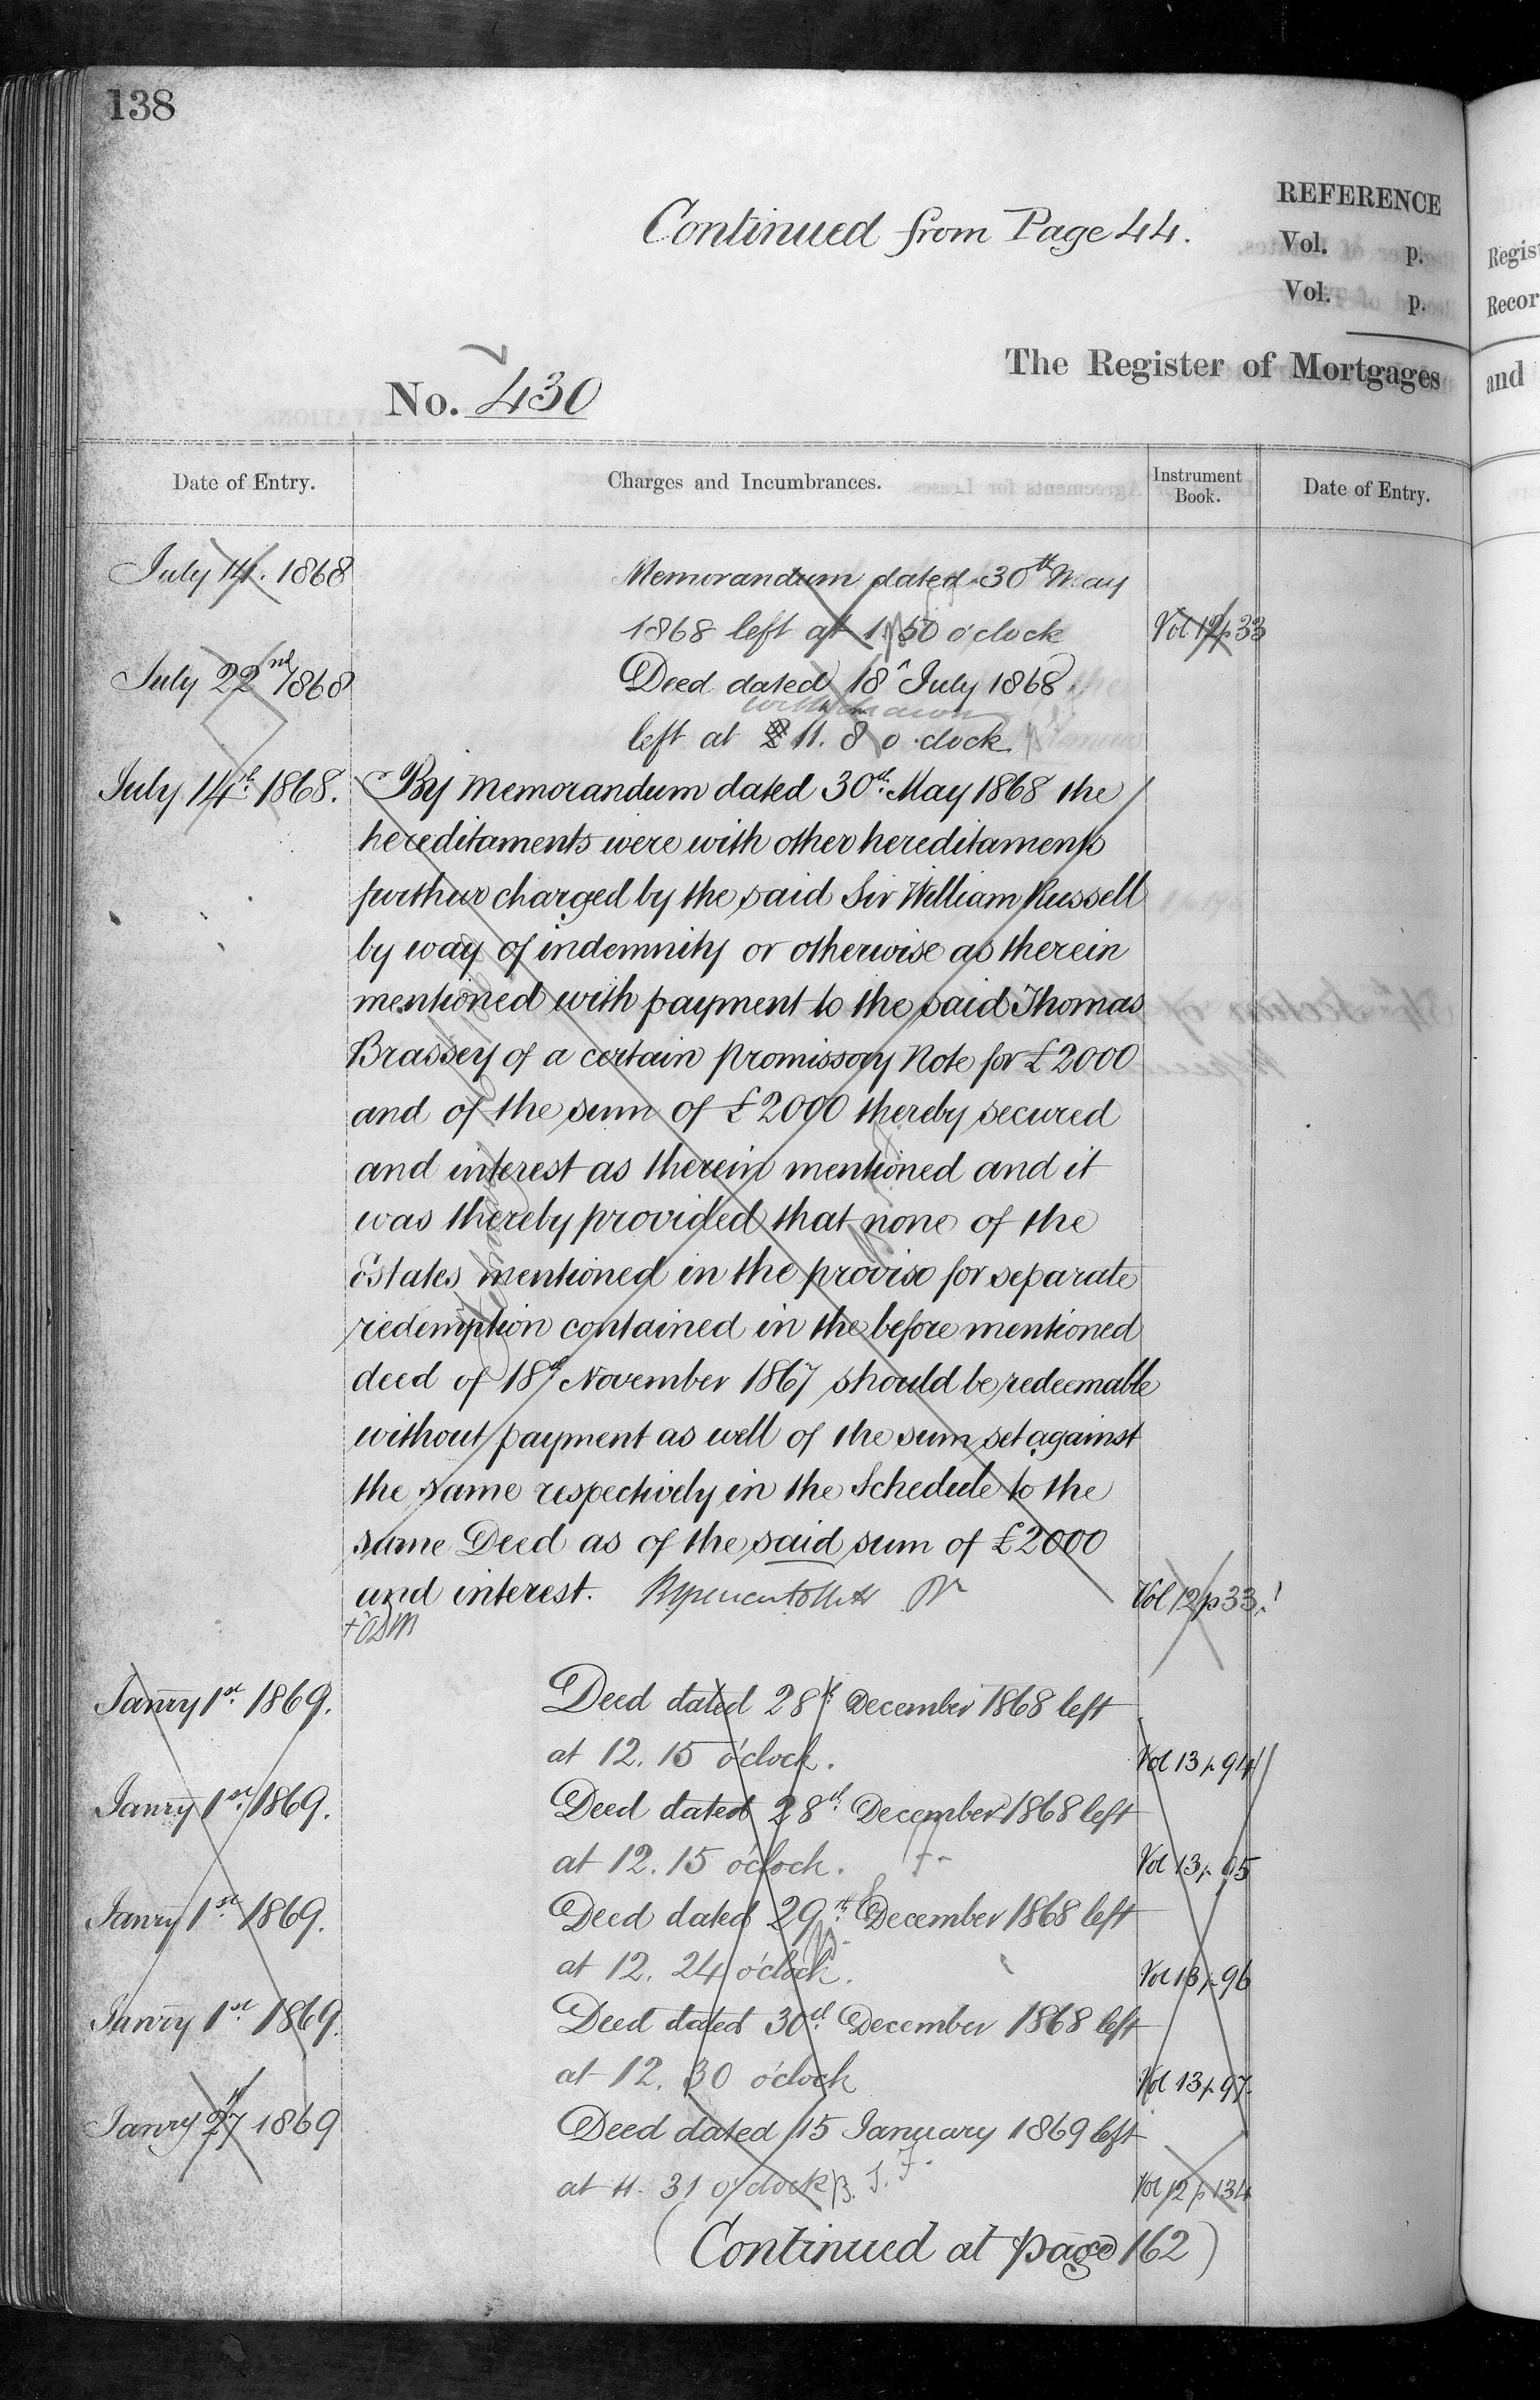 138
Continued from Page 44.
REFERENCE
Vol. p.
Vol. p.
The Register of Mortgages
No. 430
Date of Entry.
Charges and Incumbrances.
Instrument Book.
Date of Entry.
July 14. 1868
Memorandum dated 30th May
1868 left at 1.50 o'clock
Vol 12 p 33
July 22nd 1868
Deed dated 18th July 1868
withdrawn
left at 11. 8 o'clock
July 14th 1868.
By Memorandum dated 30th May 1868 the
hereditaments were with other hereditaments
further charged by the said Sir William Russell
by way of indemnity or otherwise as therein
mentioned with payment to the said Thomas
Brassey of a certain promissory Note for £2000
and of the sum of £2000 thereby secured
and interest as therein mentioned and it
was thereby provided that none of the
Estates mentioned in the proviso for separate
redemption contained in the before mentioned
deed of 18th November 1867 should be redeemable
without payment as well of the sum set against
the same respectively in the Schedule to the
same Deed as of the said sum of £2000
and interest.
Vol 12 p 33.
Janry 1st 1869.
Deed dated 28th December 1868 left
at 12. 15 o'clock.
Vol 13 p. 94
Janry 1st 1869.
Deed dated 28th December 1868 left
at 12. 15 o'clock.
Vol 13 p. 95
Janry 1st 1869.
Deed dated 29th December 1868 left
at 12. 24 o'clock.
Vol 13 p. 96
Janry 1st 1869.
Deed dated 30th December 1868 left
at 12. 30 o'clock
Vol 13 p. 97.
Janry 27 1869
Deed dated 15 January 1869 left
at 11. 31 o'clock
Vol 12 p 134
(Continued at page 162)
Regis
Recor
and